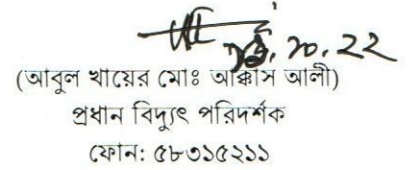 ১৬.১০.২২
(আবুল খায়ের মোঃ আক্কাস আলী)
প্রধান বিদ্যুৎ পরিদর্শক
ফোন: ৫৮৩১৫২১১